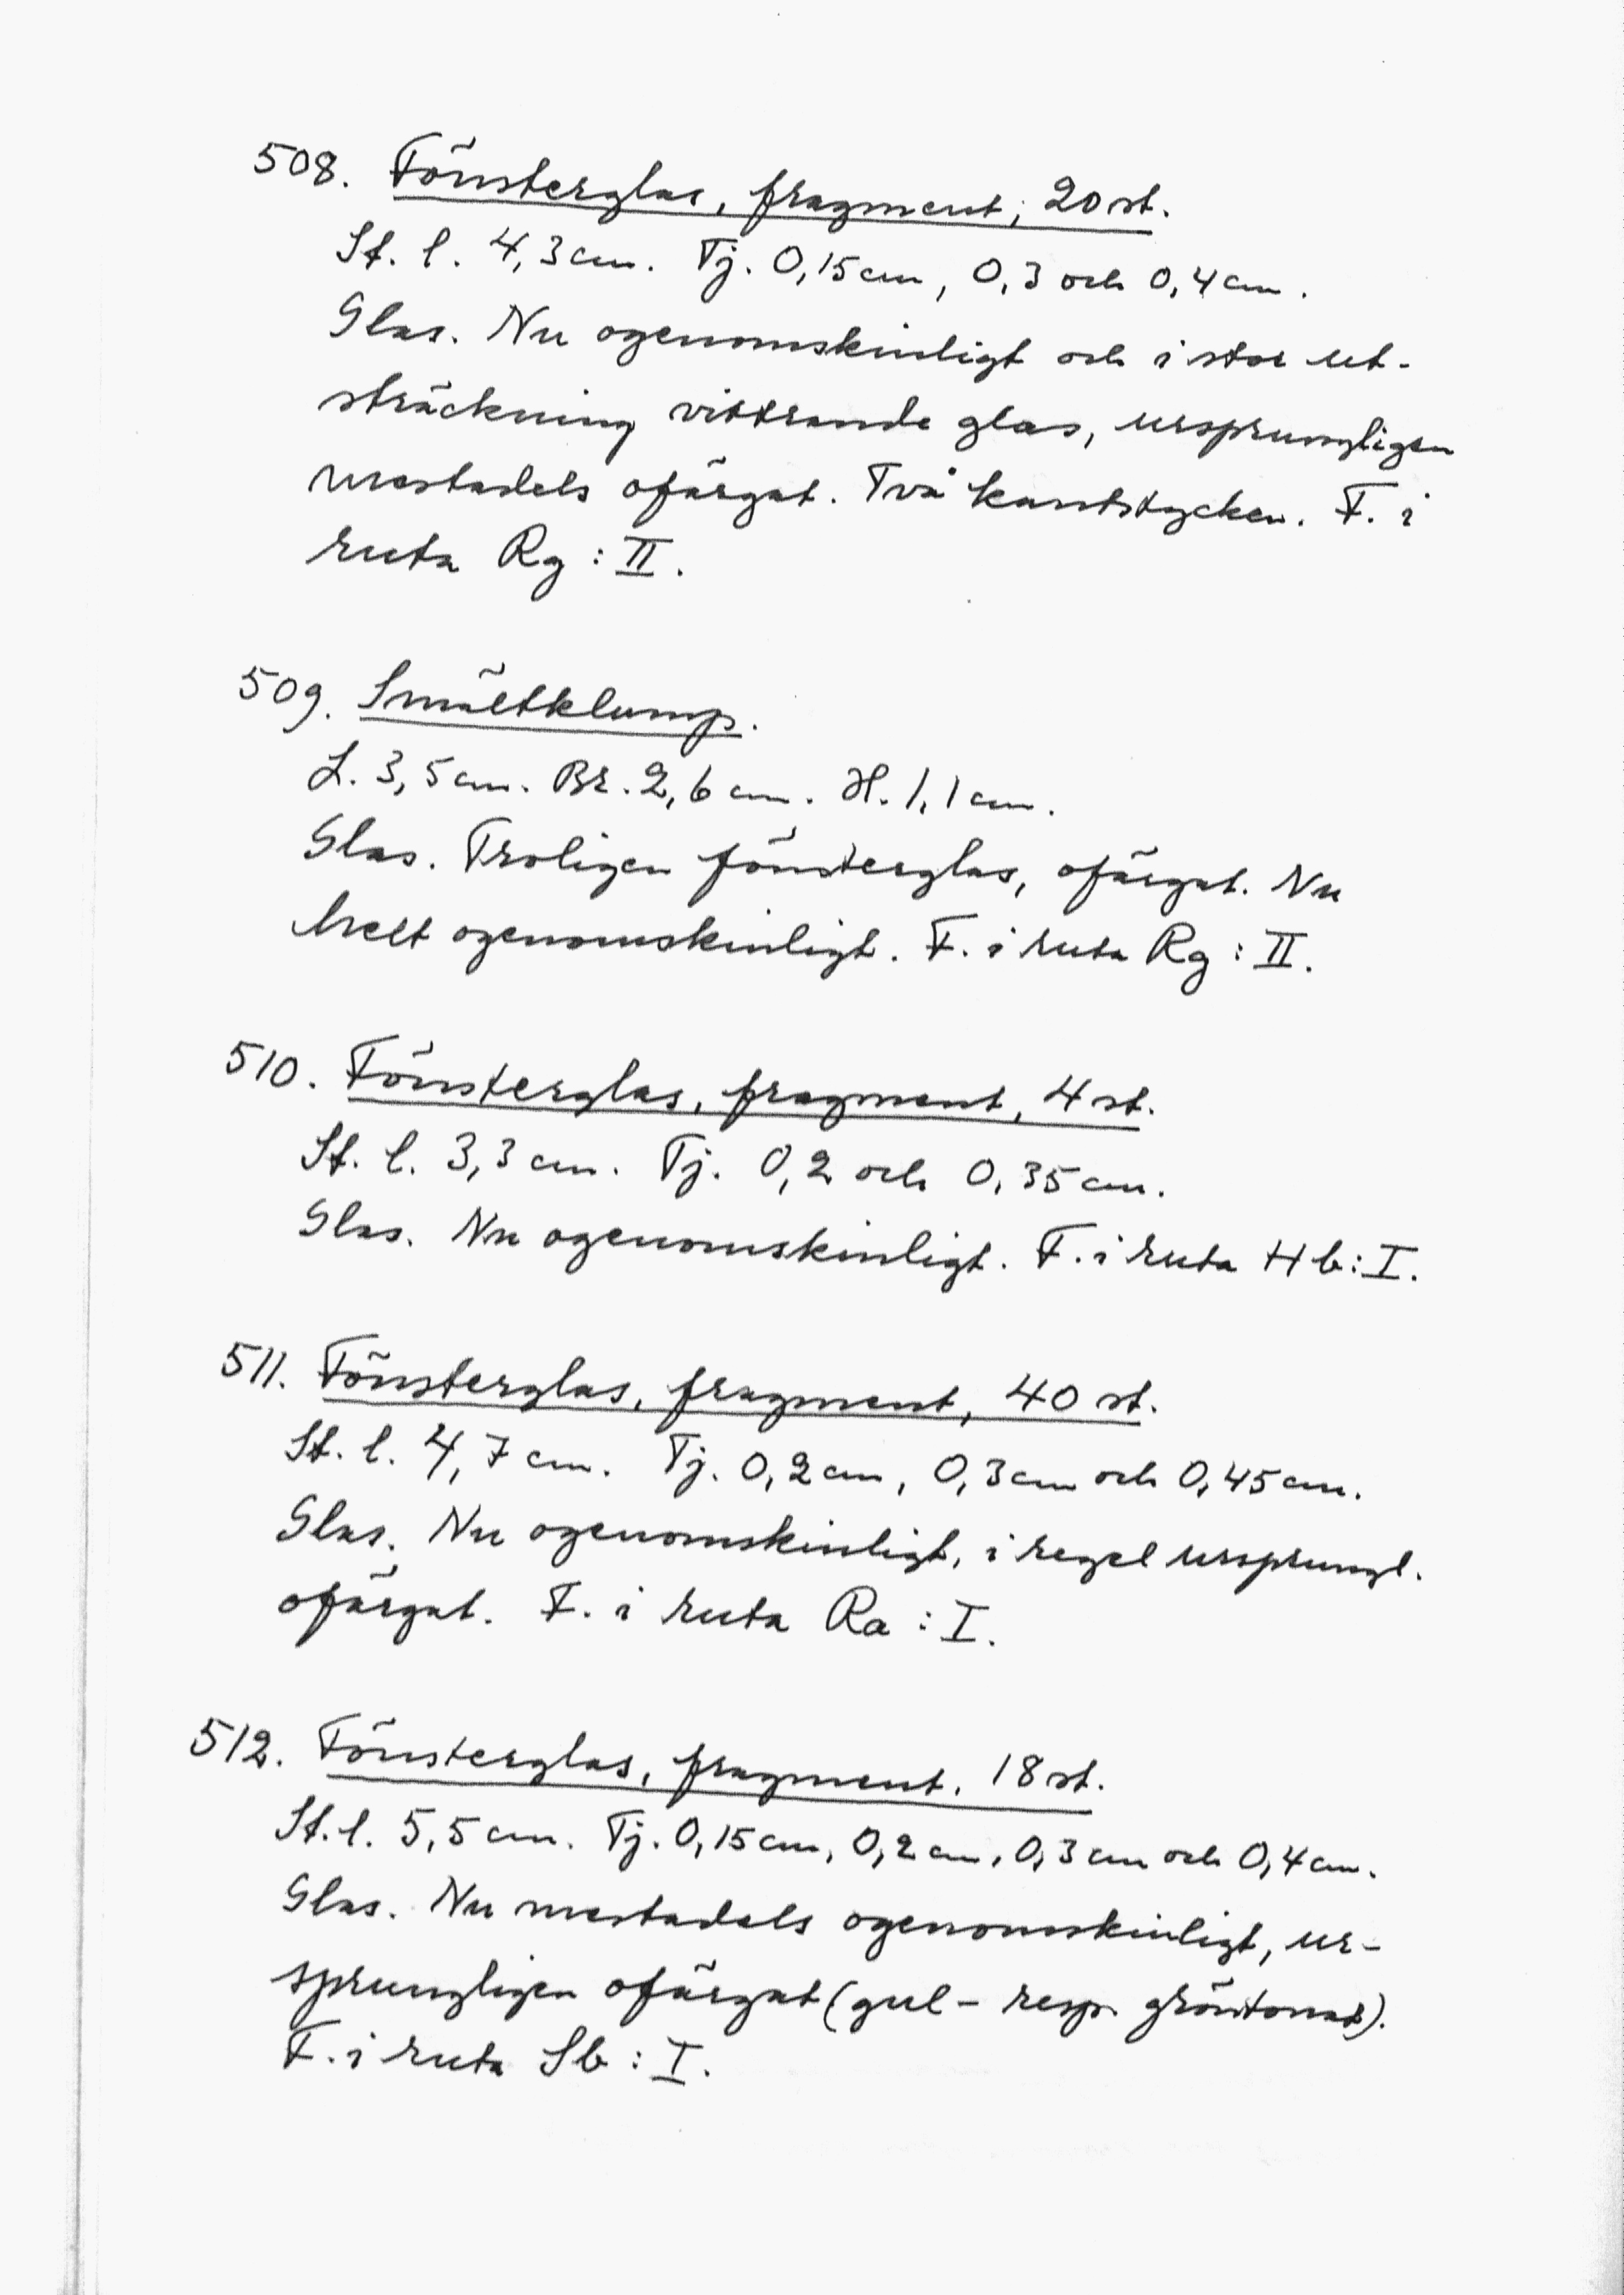 508. Fönsterglas, fragment, 20 st.
St. l. 4,3 cm. Tj. 0,15 cm, 0,3 och 0,4 cm.
Glas. Nu ogenomskinligt och i stor ut-
sträckning vittrande glas, ursprungligen
mestadels ofärgat. Två kantstycken. F. i
ruta Rg : II.
509. Smältklump.
L. 3,5 cm. Br. 2,6 cm. H. 1,1 cm.
Glas. Troligen fönsterglas, ofärgat. Nu
helt ogenomskinligt. F. i ruta Rg : II.
510. Fönsterglas, fragment, 4 st.
St. l. 3,3 cm. Tj. 0,2 och 0,35 cm.
Glas. Nu ogenomskinligt. F. i ruta Hb : I.
511. Fönsterglas, fragment, 40 st.
St. l. 4,7 cm. Tj. 0,2 cm, 0,3 cm och 0,45 cm.
Glas. Nu ogenomskinligt, i regel ursprungl.
ofärgat. F. i ruta Ra : I.
512. Fönsterglas, fragment, 18 st.
St. l. 5,5 cm. Tj. 0,15 cm, 0,2 cm, 0,3 cm och 0,4 cm.
Glas. Nu mestadels ogenomskinligt, ur-
sprungligen ofärgat (gul- resp. gröntonat).
F. i ruta Sb : I.